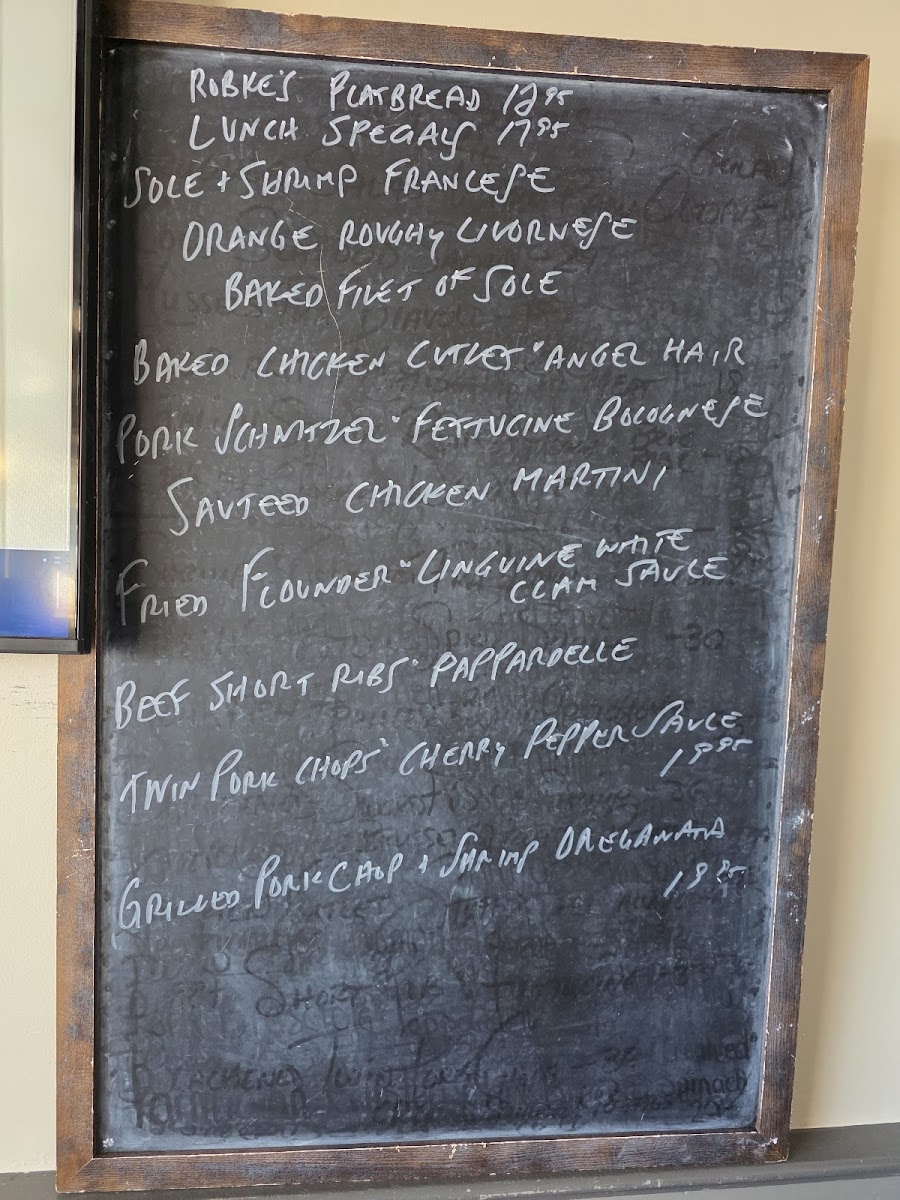 ROBKE'S FLATBREAD 12 95
LUNCH SPECIALS 17 95
SOLE + SHRIMP FRANCESE
ORANGE ROUGHY LIVORNESE
BAKED FILET OF SOLE
BAKED CHICKEN CUTLET "ANGEL HAIR
PORK SCHNITZEL " FETTUCINE BOLOGNESE
SAUTEED CHICKEN MARTINI
FRIED FLOUNDER " LINGUINE WHITE
CLAM SAUCE
BEEF SHORT RIBS " PAPPARDELLE
TWIN PORK CHOPS " CHERRY PEPPER SAUCE
19 95
GRILLED PORK CHOP + SHRIMP OREGANATA
19 95